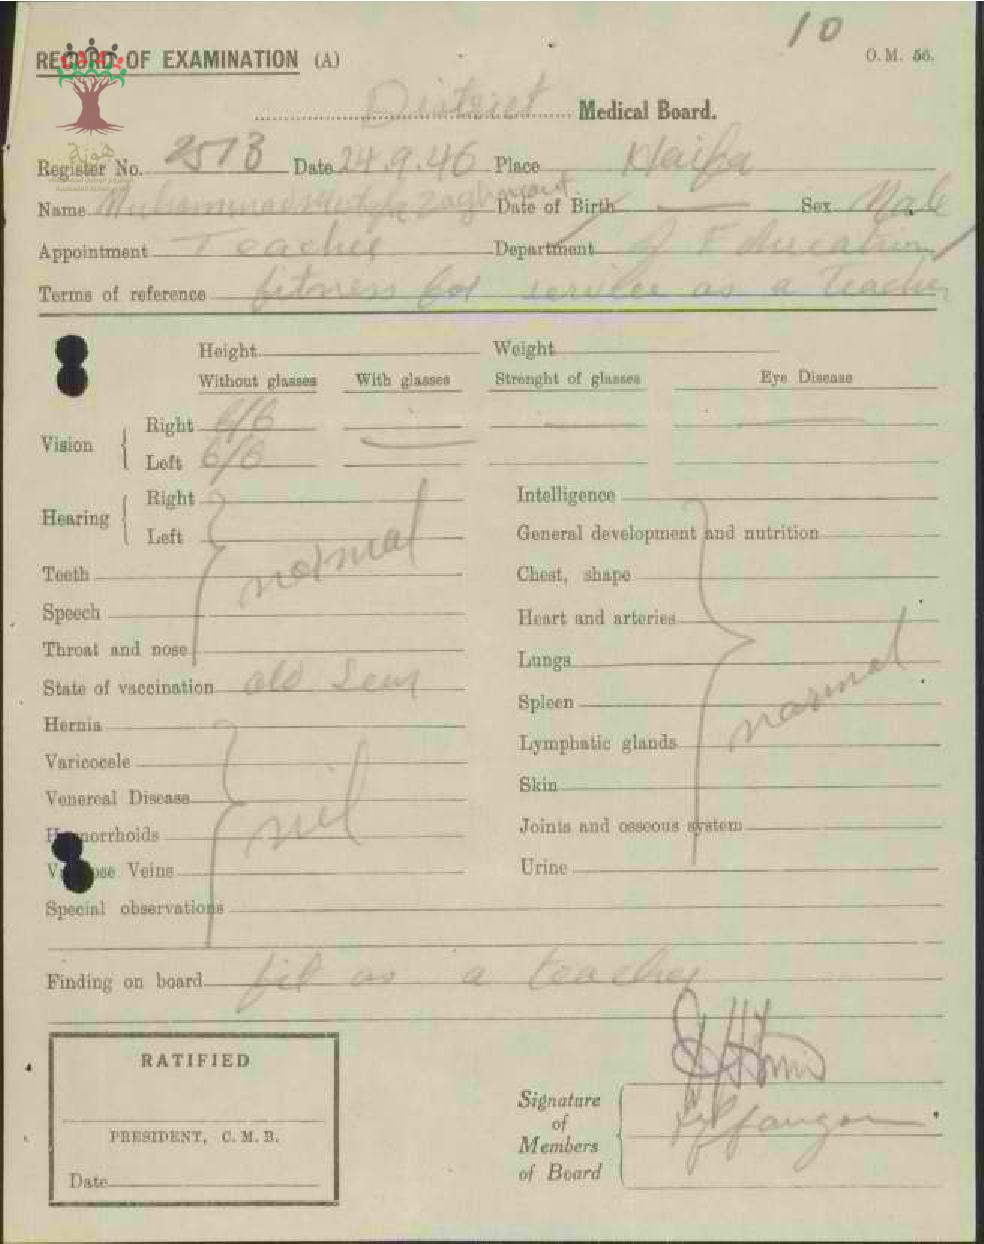 10
RECORD OF EXAMINATION (A)
O. M. 56.
District Medical Board.
Register No. 2573 Date 24.9.46 Place Haifa
هوية
Name Muhammad Date of Birth — Sex Male
Appointment Teacher Department of Education
Terms of reference fitness for service as a teacher
Height Weight
Without glasses With glasses Strenght of glasses Eye Disease
Vision
Right 6/6
Left 6/6
Hearing
Right
Left
Teeth
Speech
Throat and nose
normal
State of vaccination old
Hernia
Varicocele
Venereal Disease
Hæmorrhoids
Varicose Veins
nil
Special observations
Intelligence
General development and nutrition
Chest, shape
Heart and arteries
Lungs
Spleen
Lymphatic glands
Skin
Joints and osseous system
Urine
normal
Finding on board fit as a teacher
RATIFIED
PRESIDENT, C. M. B.
Date
Signature
of
Members
of Board